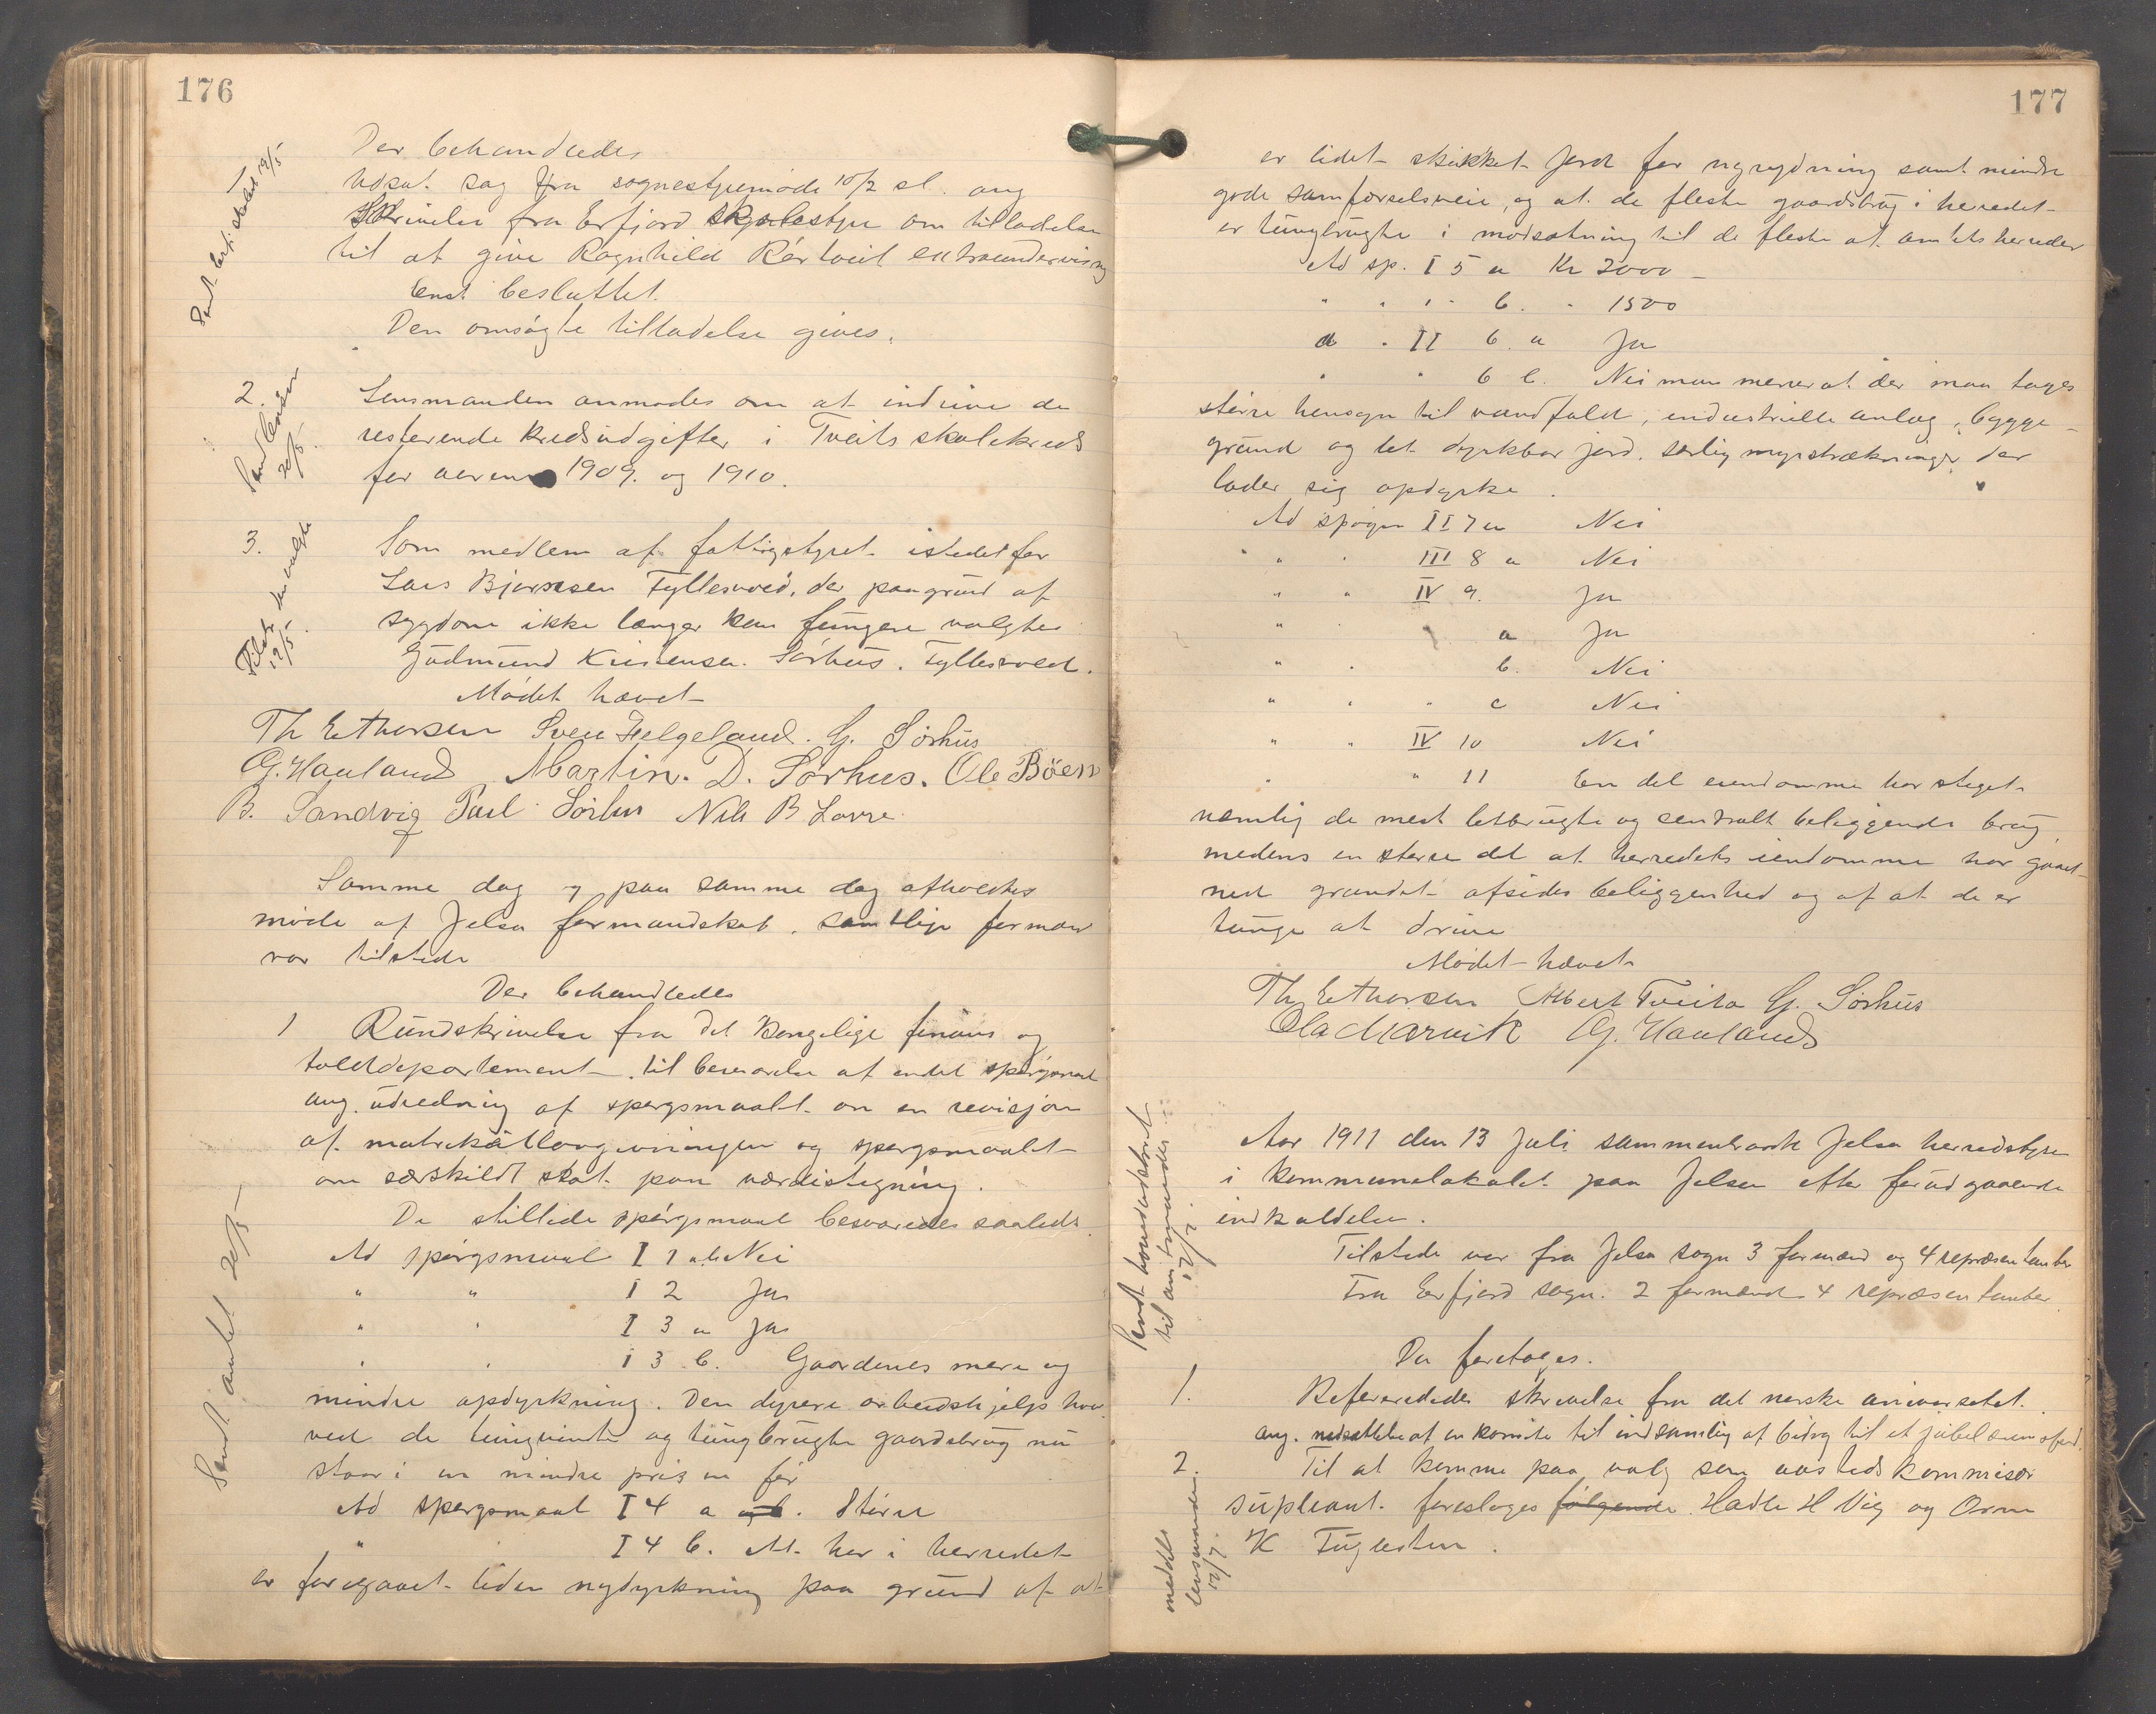 176
Der behandledes
1. Udsat sag fra sognestyremöde 10/2 sl. ang
Skrivelse fra Erfjord Skolestyre om tilladelse
til at give Ragnhild Rörtveit extraundervisning
Enst. besluttet.
Den omsøgte tilladelse gives.
2. Lensmanden anmodes om at inddrive de
resterende kredsudgifter i Tveits skolekreds
for aarene 1909. og 1910.
Sendt lensm 20/5.
3. Som medlem af fattigstyret istedetfor
Lars Bjørnsen Fyllesvold, der paagrund af
sygdom ikke længer kan fungere valgtes
Gudmund Kristensen Sörhus. Fyllesvold.
Tilst. den valgte 19/5.
Mödet hævet
Th Ethorsen Sven Helgeland. G. Sörhus
G. Hauland Martin. D. Sørhus. Ole Böen
B. Sandvig Paul Sörhus Nils B Lavre
Samme dag og paa samme dag afholdtes
möde af Jelsa formandskab. samtlige formænd
var tilstede
Der behandledes
1 Rundskrivelse fra det kongelige finans og
tolddepartement til besvarelse af endel spörgsmaal
ang. udredning af spørgsmaalet om en revisjon
af matrikkellovgivningen og spørgsmaalet
om særskildt skat paa værdistigning.
De stillede spörgsmaal besvaredes saaledes
Ad spörgsmaal I 1 ab Nei
" " I 2 Ja
" " I 3 a Ja
" " I 3 b. Gaardenes mere og
mindre opdyrkning. Den dyrere arbeidshjelp hvor
ved de tungvinte og tungbrugte gaardsbrug nu
staar i en mindre pris en før
Ad spørgsmaal I 4 a og b. Större
" I 4 b. At her i herredet
er foregaaet liden nydyrkning paa grund af at
Sendt amtet 20/5
177
er lidet skikket Jord for nyrydning samt mindre
gode samfærselsveie, og at de fleste gaardsbrug i herredet
er tungbrugte i modsætning til de fleste af amtets herreder
Ad sp. I 5 a Kr 2000 –
" " " " b. " 1500
a " II 6. a Ja
" " 6 b. Nei man mener at der maa tages
större hensyn til vandfald, industrielle anlæg, bygge-
grund og let dyrkbar jord. særlig myrstrækninger der
lader sig opdyrke.
Ad spögsm II 7 a Nei
" " " III 8 a Nei
" " IV 9. Ja
" " a Ja
" " b. Nei
" " " c Nei
" " IV 10 Nei
" " 11 En del eiendomme har steget
nemlig de mest letbrugte og centralt beliggende brug
medens en større del af herredets eiendomme har gaaet
ned grundet afsides beliggenhed og af at de er
tunge at drive
Mödet hævet
Th Ethorsen Albert Tveita G. Sörhus
Ola Marvik G. Hauland
Aar 1911 den 13 Juli sammentraadte Jelsa herredstyre
i kommunelokalet paa Jelsa efter forudgaaende
indkaldelse.
Tilstede var fra Jelsa sogn 3 formænd og 4 repræsentanter
Fra Erfjord sogn. 2 formænd 4 repræsentanter
Der foretoges.
1. Refereredes skrivelse fra det norske universitet.
ang. nedsættelse af en komite til indsamling af bidrag til et jubelæumsfond.
2. Til at komme paa valg som aasteds kommisær
supleant. foresloges følgende Hadle H Vig og Orm
K Fuglesten.
meddelt lensmanden 17/7.